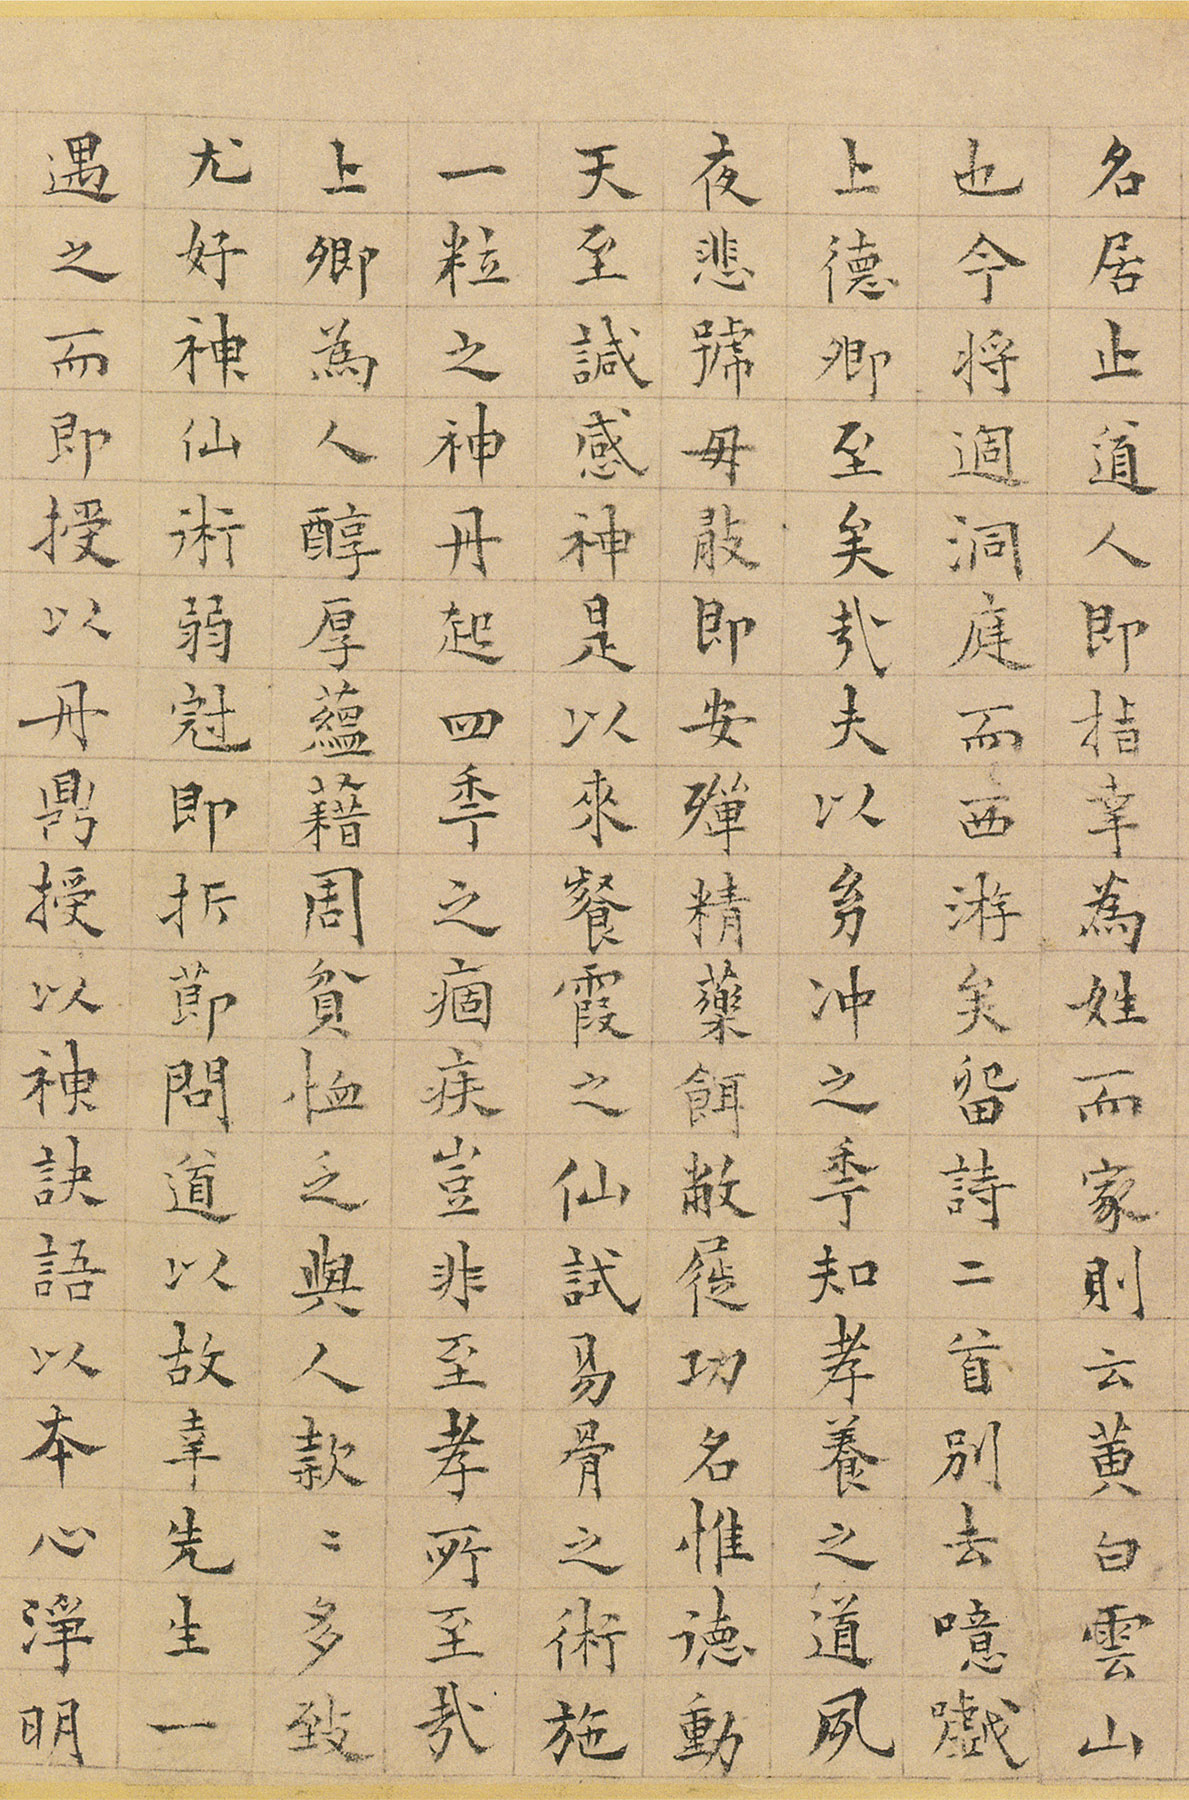 名居止道人即指幸為姓而家則云黄白雲山
也今将週洞庭而西游矣畱詩二首别去噫戯
上德卿至矣哉夫以㓜冲之秊知孝養之道夙
夜悲號毋敢即安殫精藥餌敝屣功名惟德動
天至諴感神是以來餐霞之仙試易骨之術施
一粒之神丹起四秊之痼疾豈非至孝所至哉
上卿為人醇厚蘊藉周貧恤乏與人款〻多致
尤好神仙術弱冠即折節問道以故幸先生一
遇之而即授以丹鼎授以神訣語以本心淨明